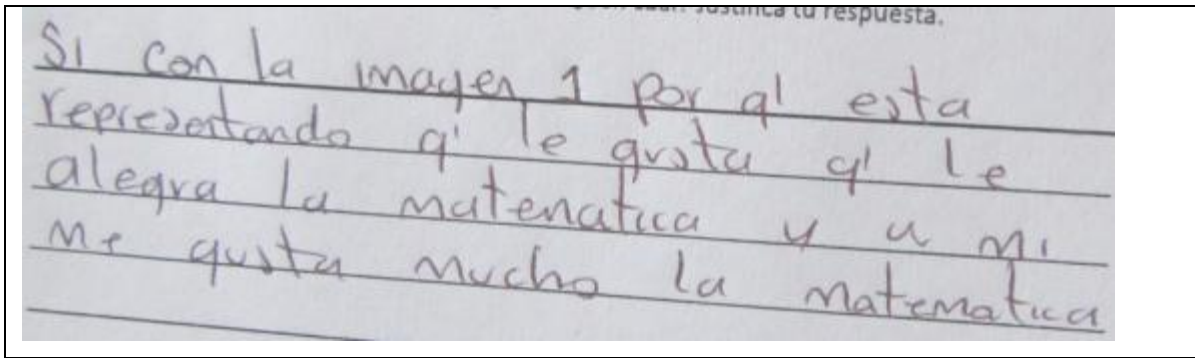 tu respuesta.
Si con la imagen 1 por q' esta
representando q' le gusta q' le
alegra la matematica y a mi
me gusta mucho la matematica